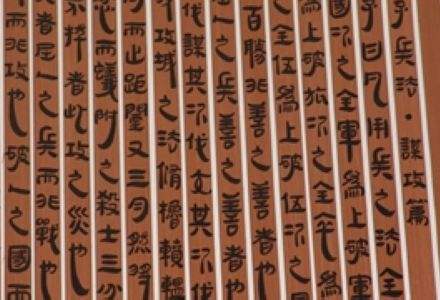 子兵法·謀攻篇
子曰凡用兵之法全
國次之全軍為上破軍
為上破旅次之全卒為
之全伍為上破伍次之是
百勝非善之善者也
人之兵善之善者也
伐謀其次伐交其次伐
攻城之法脩櫓轒轀
月而止距闉又三月然後
忿而蟻附之殺士三分
不拔者此攻之災也
者屈人之兵而非戰也
而非攻也破人之國而